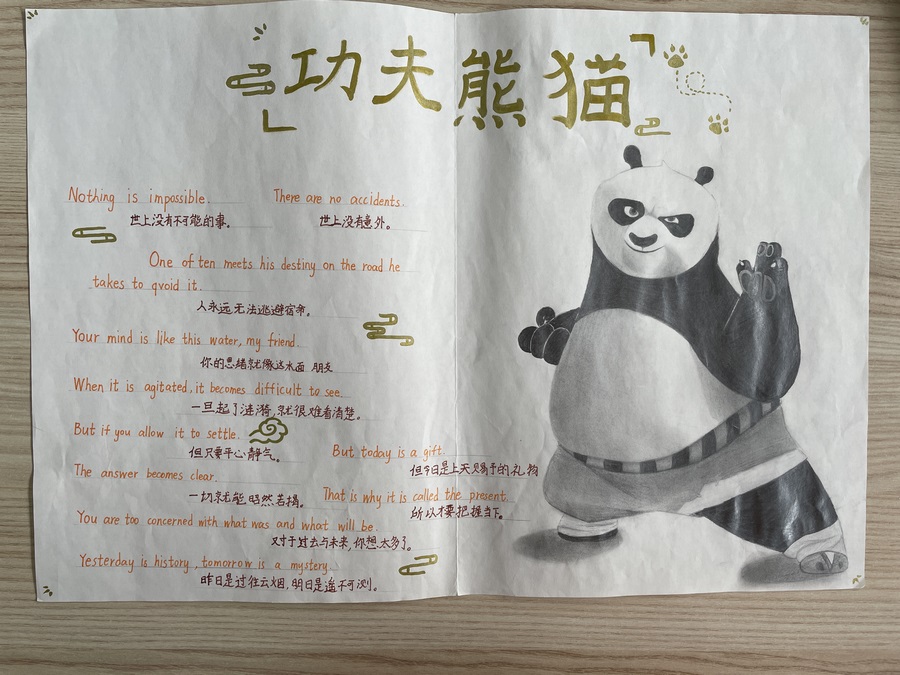 功夫熊猫
Nothing is impossible.
世上没有不可能的事。
There are no accidents.
世上没有意外。
One often meets his destiny on the road he
takes to qvoid it.
人永远无法逃避宿命。
Your mind is like this water, my friend.
你的思绪就像这水面 朋友
When it is agitated, it becomes difficult to see.
一旦起了涟漪,就很难看清楚。
But if you allow it to settle.
但只要平心静气。
The answer becomes clear.
一切就能昭然若揭。
You are too concerned with what was and what will be.
对于过去与未来,你想太多了。
Yesterday is history, tomorrow is a mystery.
昨日是过往云烟,明日是遥不可测。
But today is a gift.
但今日是上天赐予的礼物
That is why it is called the present.
所以才要把握当下。